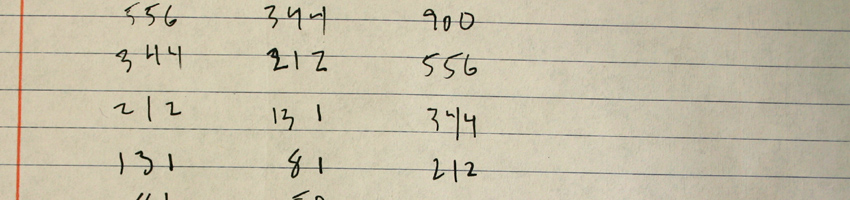 556 344 900
344 212 556
212 131 344
131 81 212